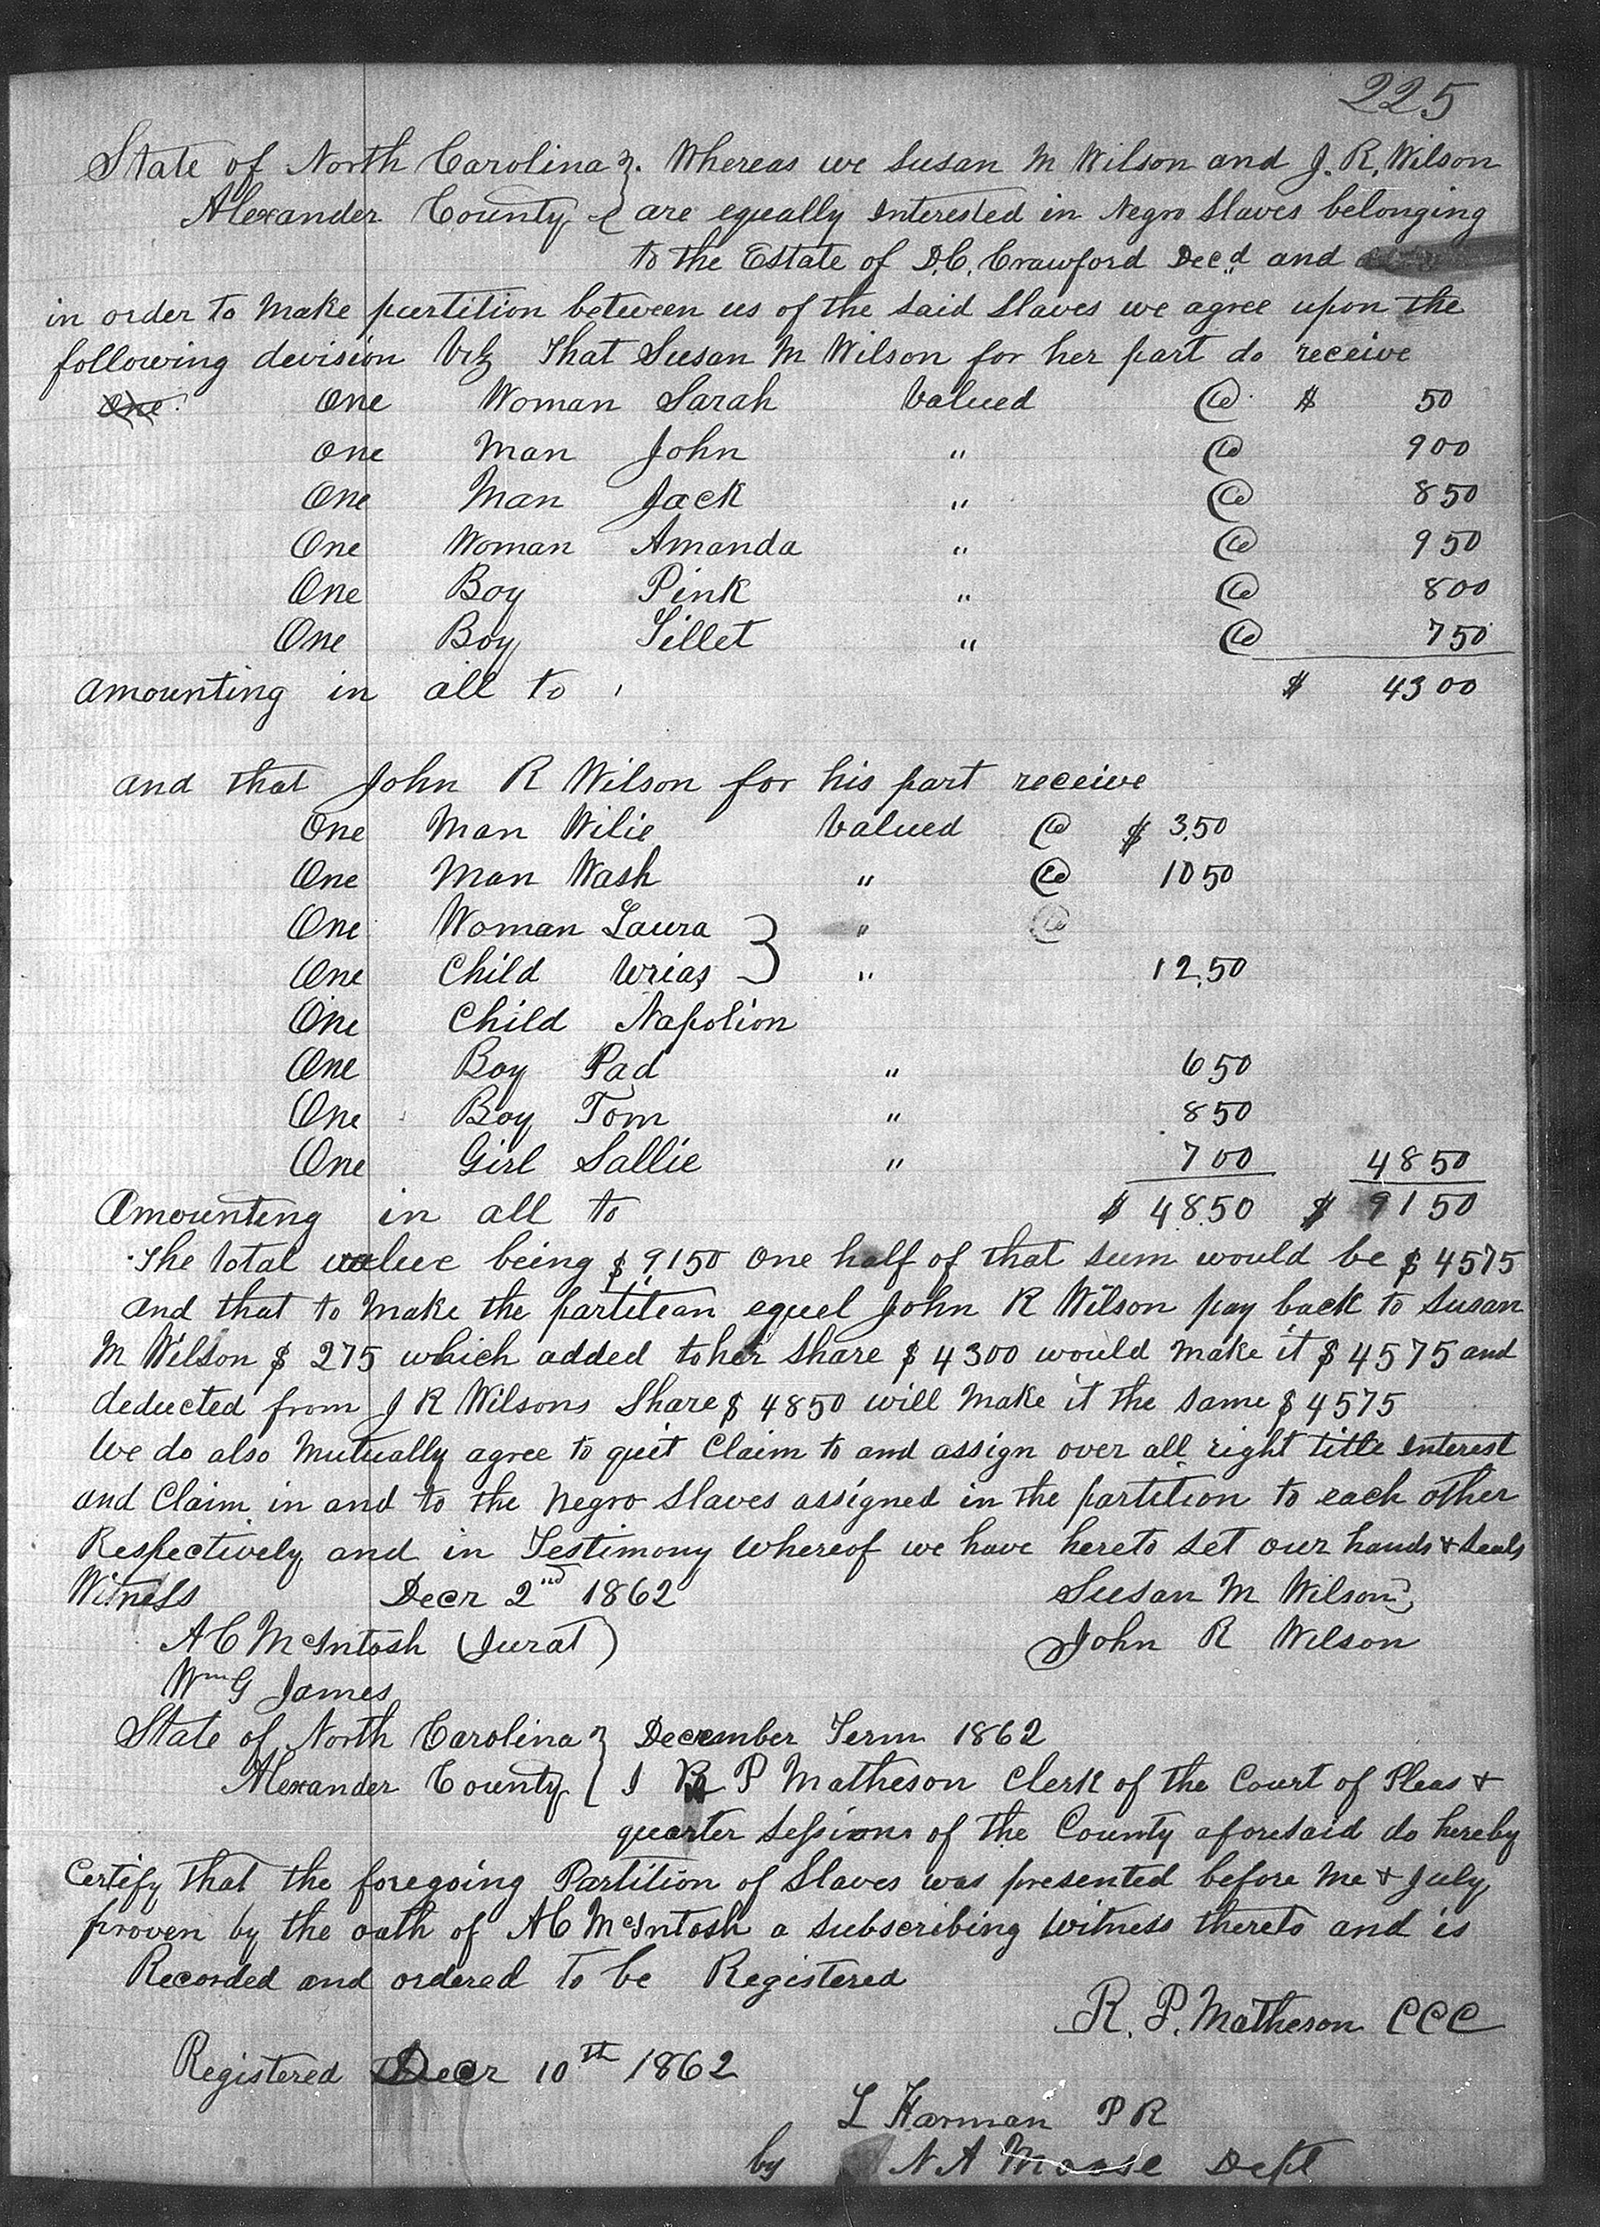 225
State of North Carolina }. Whereas we Susan M Wilson and J. R. Wilson
Alexander County } are equally Interested in Negro Slaves belonging
to the Estate of D.C. Crawford Dec'd and
in order to Make partition between us of the said Slaves we agree upon the
following devision Viz That Susan M Wilson for her part do receive
One One Woman Sarah Valued @ $ 50
One Man John " @ 900
One Man Jack " @ 850
One Woman Amanda " @ 950
One Boy Pink " @ 800
One Boy Tillet " @ 750
Amounting in all to $ 4300
and that John R Wilson for his part receive
One Man Wilie Valued @ $ 350
One Man Wash " @ 1050
One Woman Laura } " @
One Child Urias } " 1250
One Child Napolion
One Boy Pad " 650
One Boy Tom " 850
One Girl Sallie " 700 4850
Amounting in all to $ 4850 $ 9150
The total value being $ 9150 one half of that sum would be $ 4575
and that to Make the partitean equel John R Wilson pay back to Susan
M Wilson $ 275 which added to her Share $ 4300 would Make it $ 4575 and
deducted from J R Wilsons Share $ 4850 will Make it the Same $ 4575
We do also Mutually agree to quit Claim to and assign over all right title Interest
and Claim in and to the Negro Slaves assigned in the partition to each other
Respectively and in Testimony Whereof we have hereto set our hands & Seals
Witness Decr 2nd 1862 Susan M Wilson
A C McIntosh (Jurat) John R Wilson
Wm G James
State of North Carolina } December Term 1862
Alexander County { I R P Matheson Clerk of the Court of Pleas &
quarter Sessions of the County aforesaid do hereby
Certify that the foregoing Partition of Slaves was presented before Me & July
proven by the oath of A C McIntosh a Subscribing Witness thereto and is
Recorded and ordered to be Registered
R. P. Matheson CCC
Registered Decr 10th 1862
L Harman P R
by N A Moose Dept